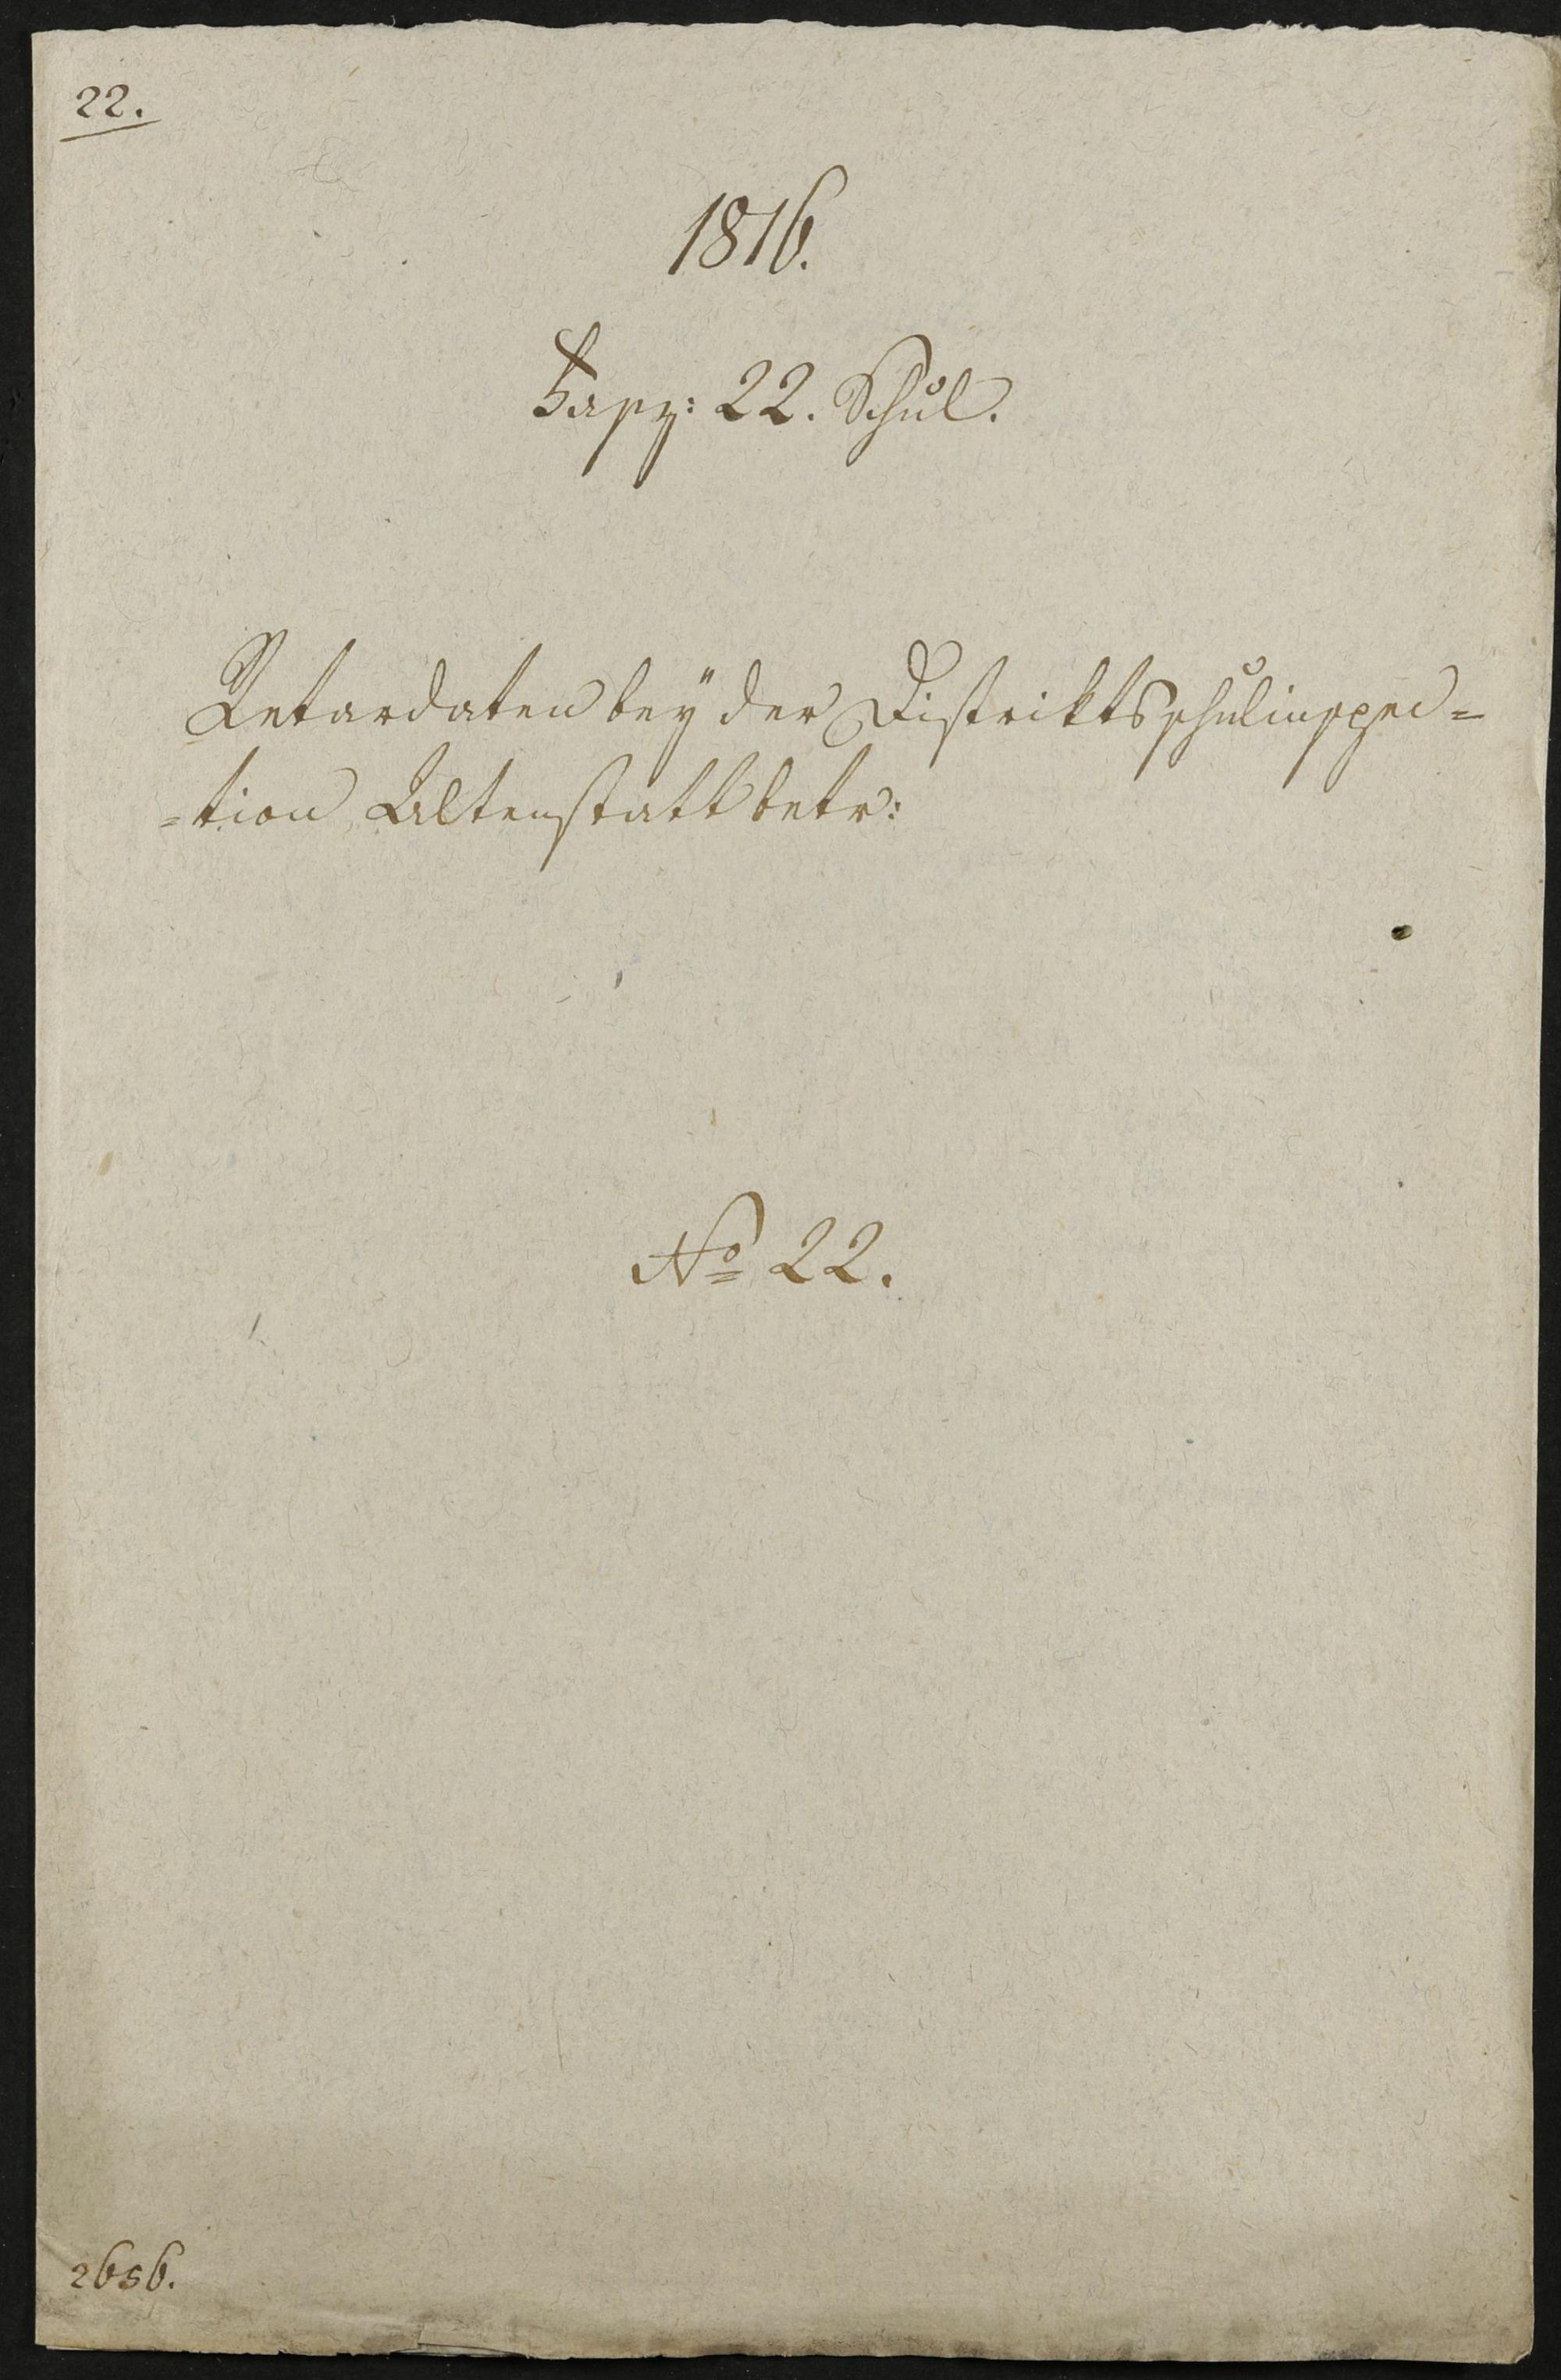 22.
1816.
Fasz: 22. Schul.
Retardaten bey der Distriktsschulinspec=
=tion Altenstatt betr:
No 22.
2656.